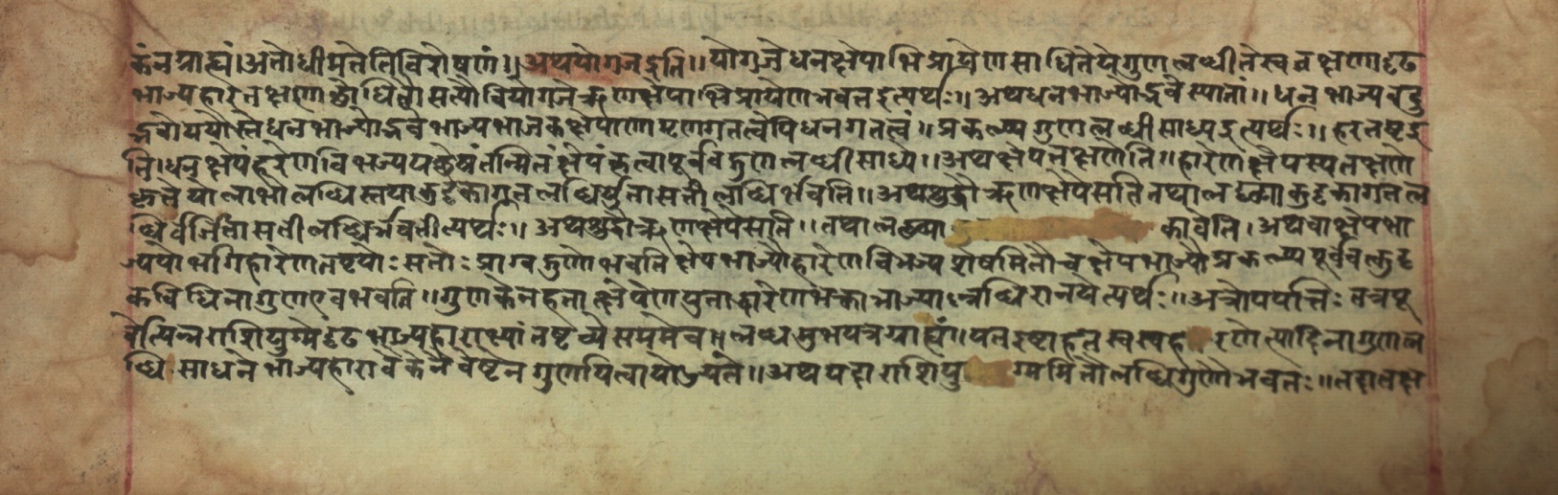 कं न ग्राह्यं। अतो धीमतेति विशेषणं॥ अथ योगज इति॥ योगजे धनक्षेपाभिप्रायेण साधिते ये गुणलब्धी ते स्वतक्षणे दृढ
भाज्यहारतक्षणे शोधिते सत्यौ वियोगजे ऋणक्षेपाभिप्रायेण भवत इत्यर्थः॥ अथ धनभाज्योद्भवेस्यातां॥ धनभाज्यवदु
द्भवो ययोस्ते धनभाज्योद्भवे भाज्यभाजकक्षेपाणामृणगतत्वेपि धनगतत्वं॥ प्रकल्प्य गुणलब्धी साध्य इत्यर्थः॥ हरतष्ट इ
ति। धनक्षेपं हरेण विभज्य यच्छेषं तन्मितं क्षेपं कृत्वा पूर्ववद्गुणलब्धी साध्ये॥ अथ क्षेपतक्षणेति॥ हारेण क्षेपस्य तक्षणे
कृते या लाभो लब्धिस्तया कुट्टकागत लब्धिर्युता सती लब्धिर्भवति॥ अथ शुद्धौ ऋणक्षेपे सति तथा लब्ध्या कुट्टकागत ल
ब्धिर्वर्जिता सती लब्धिर्भवतीत्यर्थः॥ अथ शुद्धौ ऋणक्षेपे सति॥ तथा लब्ध्या कावेति। अथवा क्षेपभा
ज्ययो भागहारेण तष्टयोः सतोः प्राग्वद्गुणो भवति क्षेपभाज्यौ हारेण विभज्य शेषमितौ च क्षेपभाज्यौ प्रकल्प्य पूर्ववत्कुट्ट
कविधिना गुण एव भवति॥ गुणकेन हता क्षेपेण युता द्धारेण भक्ता भाज्याल्लब्धिरानयेत्यर्थः॥ अत्रोपपत्तिः तत्र पू
र्वोत्पन्न राशियुग्मे दृढभाज्यहाराभ्यां तष्टव्ये सममेव॥ लब्धमुभयत्र ग्राह्यं। यत इष्टाहत स्वस्वह रणेत्यादिना गुणल
ब्धि साधने भाज्यहारावेकेनैवेष्टेन गुणयित्वा योज्येते॥ अथ यदा राशियु ग्ममितौ लब्धिगुणौ भवतः॥ तदा तक्ष